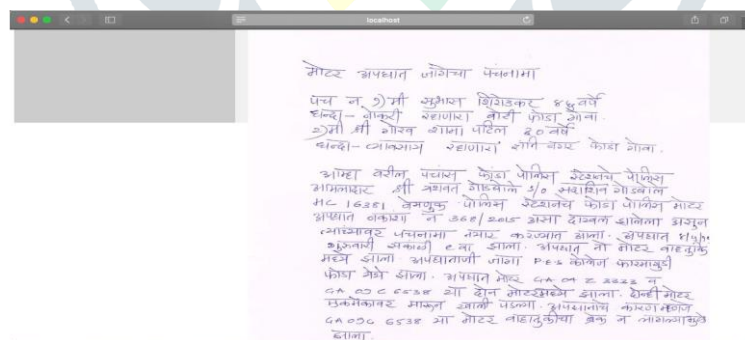 localhost
मोटर अपघात जागेचा पंचनामा
पंच नं १) मी सुभास शिरोडकर ४५ वर्षे
धन्दा - नोकरी रहाणारा बोरी फोंडा गोवा.
२) मी श्री गौरव शामा पटिल ३० वर्षे
धन्दा - व्यवसाय रहाणारा शांति नगर फोंडा गोवा.
आम्हा वरील पंचांस फोंडा पोलिस स्टेशनचे पोलिस
श्री यशवंत गोडबोले s/o सदाशिव गोडबोले
HC 16381 नेमणुक पोलिस स्टेशनचे फोंडा पोलिस मोटर
अपघात नकाशा नं 368/2015 असा दाखल झालेला असुन
त्यांच्यावर पंचनामा तयार करण्यात आला. अपघात
शुक्रवारी सकाळी ९ वा झाला. अपघात तो मोटर वाहतुके
मध्ये झाला. अपघाताची जागा P.E.S कॉलेज फारमागुडी
फोंडा येथे झाला. अपघात मोटर GA 09 व
GA 09C 6538 या दोन मोटरमध्ये झाला. दोन्ही मोटर
एकमेकावर मारून खाली पडल्या. अपघाताचे कारण म्हणजे
GA 09C 6538 या मोटर वाहतुकीचा ब्रेक न लागल्यामुळे
झाला.